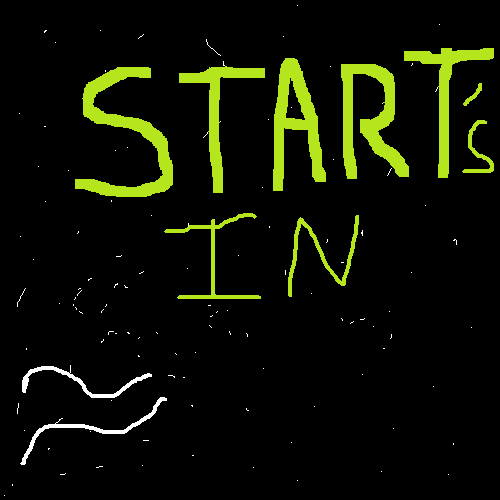 START's
IN